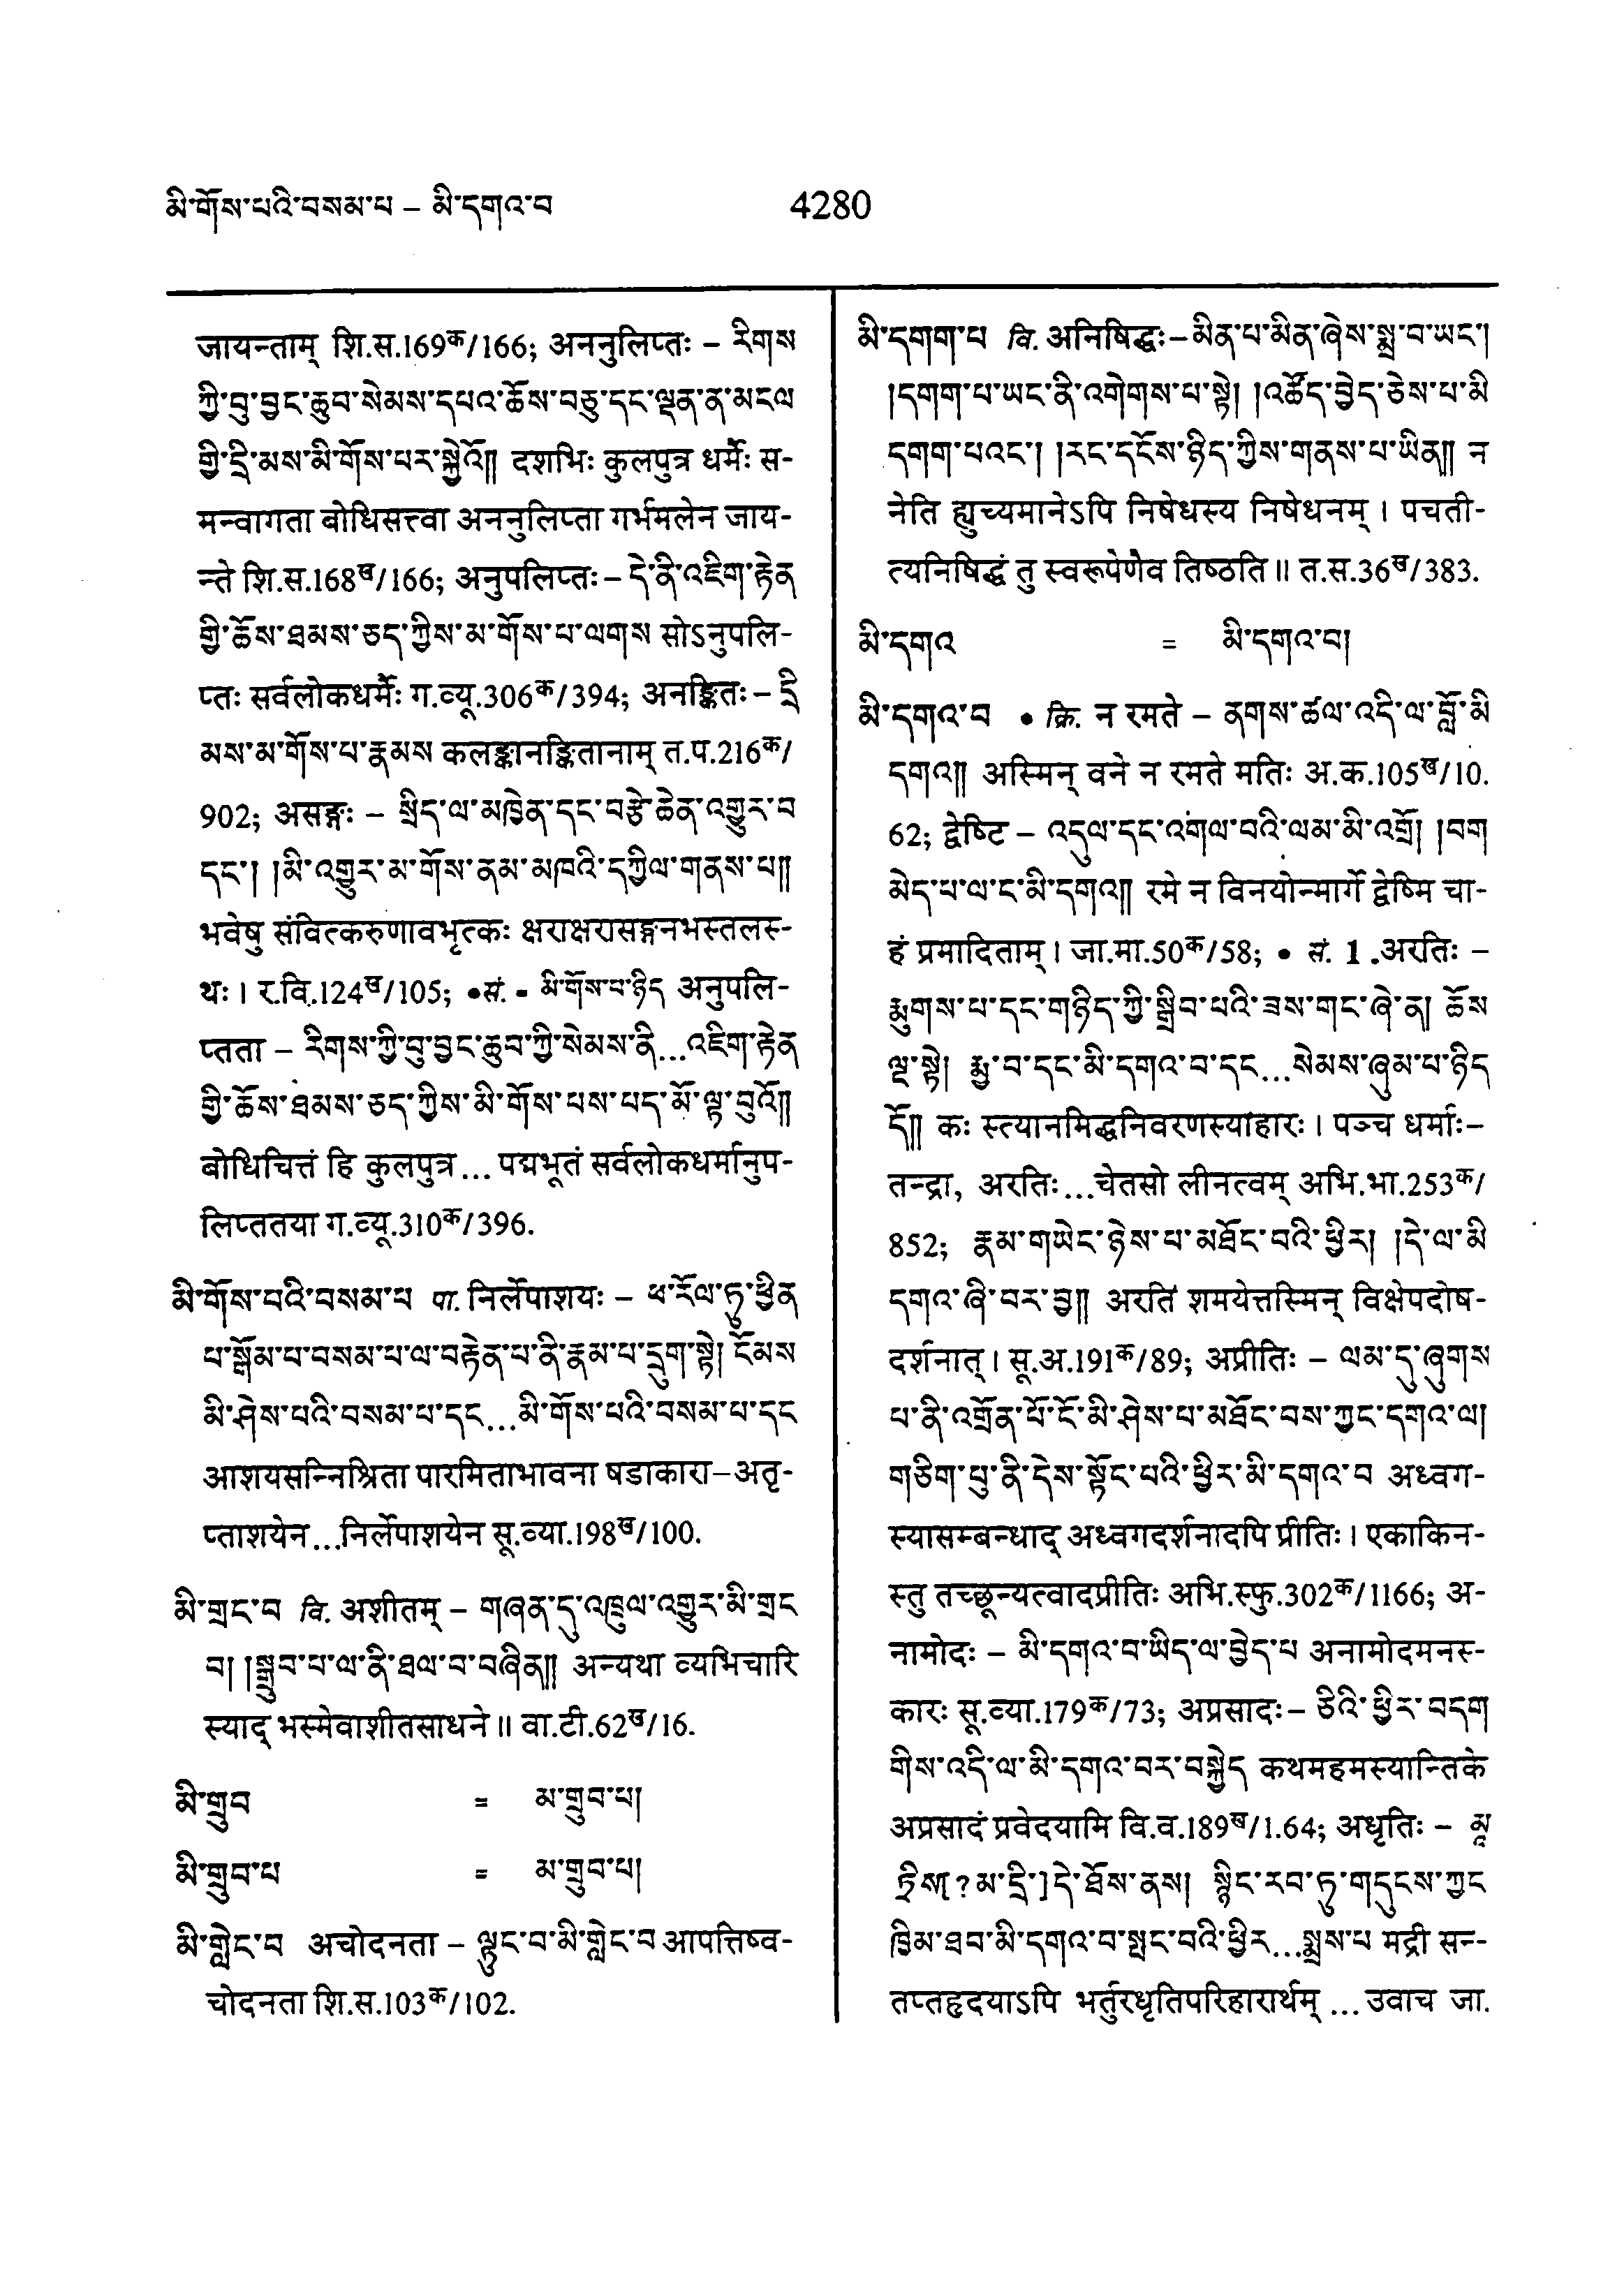 མི་གོས་པའི་བསམ་པ – མི་དགའ་བ
4280
जायन्ताम् शि.स.169क/166; अननुलिप्तः – རིགས
ཀྱི་བུ་བྱང་ཆུབ་སེམས་དཔའ་ཆོས་བཅུ་དང་ལྡན་ན་མངལ
གྱི་དྲི་མས་མི་གོས་པར་སྐྱེའོ།། दशभिः कुलपुत्र धर्मैः स-
मन्वागता बोधिसत्त्वा अननुलिप्ता गर्भमलेन जाय-
न्ते शि.स.168ख/166; अनुपलिप्तः – དེ་ནི་འཇིག་རྟེན
གྱི་ཆོས་ཐམས་ཅད་ཀྱིས་མ་གོས་པ་ལགས सोऽनुपलि-
प्तः सर्वलोकधर्मैः ग.व्यू.306क/394; अनङ्कितः – དྲི
མས་མ་གོས་པ་རྣམས कलङ्कानङ्कितानाम् त.प.216क/
902; असङ्गः – སྲིད་ལ་མཁྱེན་དང་བརྩེ་ཆེན་འགྱུར་བ
དང་། །མི་འགྱུར་མ་གོས་ནམ་མཁའི་དཀྱིལ་གནས་པ།།
भवेषु संवित्करुणावभृत्कः क्षराक्षरासङ्गनभस्तलस्-
थः। र.वि.124ख/105; •सं. ॰ མི་གོས་པ་ཉིད अनुपलि-
प्तता – རིགས་ཀྱི་བུ་བྱང་ཆུབ་ཀྱི་སེམས་ནི...འཇིག་རྟེན
གྱི་ཆོས་ཐམས་ཅད་ཀྱིས་མི་གོས་པས་པད་མོ་ལྟ་བུའོ།།
बोधिचित्तं हि कुलपुत्र... पद्मभूतं सर्वलोकधर्मानुप-
लिप्ततया ग.व्यू.310क/396.
མི་གོས་པའི་བསམ་པ पा. निर्लेपाशयः – ཕ་རོལ་ཏུ་ཕྱིན
པ་སྒོམ་པ་བསམ་པ་ལ་བརྟེན་པ་ནི་རྣམ་པ་དྲུག་སྟེ། ངོམས
མི་ཤེས་པའི་བསམ་པ་དང...མི་གོས་པའི་བསམ་པ་དང
आशयसन्निश्रिता पारमिताभावना षडाकारा–अतृ-
प्ताशयेन...निर्लेपाशयेन सू.व्या.198ख/100.
མི་གྲང་བ वि. अशीतम् – གཞན་དུ་འཁྲུལ་འགྱུར་མི་གྲང
བ། །སྒྲུབ་པ་ལ་ནི་ཐལ་བ་བཞིན།། अन्यथा व्यभिचारि
स्याद् भस्मेवाशीतसाधने॥ वा.टी.62ख/16.
མི་གྲུབ = མ་གྲུབ་པ།
མི་གྲུབ་པ = མ་གྲུབ་པ།
མི་གླེང་བ अचोदनता – ལྟུང་བ་མི་གླེང་བ आपत्तिष्व-
चोदनता शि.स.103क/102.
མི་དགག་པ वि. अनिषिद्धः – མིན་པ་མིན་ཞེས་སྨྲ་བ་ཡང་།
།དགག་པ་ཡང་ནི་འགེགས་པ་སྟེ། །འཚོད་བྱེད་ཅེས་པ་མི
དགག་པའང་། །རང་དངོས་ཉིད་ཀྱིས་གནས་པ་ཡིན།། न
नेति ह्युच्यमानेऽपि निषेधस्य निषेधनम्। पचती-
त्यनिषिद्धं तु स्वरूपेणैव तिष्ठति॥ त.स.36ख/383.
མི་དགའ = མི་དགའ་བ།
མི་དགའ་བ • क्रि. न रमते – ནགས་ཚལ་འདི་ལ་བློ་མི
དགའ།། अस्मिन् वने न रमते मतिः अ.क.105ख/10.
62; द्वेष्टि – འདུལ་དང་འགལ་བའི་ལམ་མི་འགྲོ། །བག
མེད་པ་ལ་ང་མི་དགའ།། रमे न विनयोन्मार्गे द्वेष्मि चा-
हं प्रमादिताम्। जा.मा.50क/58; • सं. 1.अरतिः –
རྨུགས་པ་དང་གཉིད་ཀྱི་སྒྲིབ་པའི་ཟས་གང་ཞེ་ན། ཆོས
ལྔ་སྟེ། རྨྱ་བ་དང་མི་དགའ་བ་དང...སེམས་ཞུམ་པ་ཉིད
དོ།། कः स्त्यानमिद्धनिवरणस्याहारः। पञ्च धर्माः–
तन्द्रा, अरतिः...चेतसो लीनत्वम् अभि.भा.253क/
852; རྣམ་གཡེང་ཉེས་པ་མཐོང་བའི་ཕྱིར། །དེ་ལ་མི
དགའ་ཞི་བར་བྱ།། अरतिं शमयेत्तस्मिन् विक्षेपदोष-
दर्शनात्। सू.अ.191क/89; अप्रीतिः – ལམ་དུ་ཞུགས
པ་ནི་འགྲོན་པོ་ངོ་མི་ཤེས་པ་མཐོང་བས་ཀྱང་དགའ་ལ།
གཅིག་པུ་ནི་དེས་སྟོང་པའི་ཕྱིར་མི་དགའ་བ अध्वग-
स्यासम्बन्धाद् अध्वगदर्शनादपि प्रीतिः। एकाकिन-
स्तु तच्छून्यत्वादप्रीतिः अभि.स्फु.302क/1166; अ-
नामोदः – མི་དགའ་བ་ཡིད་ལ་བྱེད་པ अनामोदमनस्-
कारः सू.व्या.179क/73; अप्रसादः – ཅིའི་ཕྱིར་བདག
གིས་འདི་ལ་མི་དགའ་བར་བསྐྱེད कथमहमस्यान्तिके
अप्रसादं प्रवेदयामि वि.व.189ख/1.64; अधृतिः – མཱ
ཏྲིས[?མ་དྲི་]དེ་ཐོས་ནས། སྙིང་རབ་ཏུ་གདུངས་ཀྱང
ཁྱིམ་ཐབ་མི་དགའ་བ་སྤང་བའི་ཕྱིར...སྨྲས་པ मद्री सन्-
तप्तहृदयाऽपि भर्तुरधृतिपरिहारार्थम् ... उवाच जा.